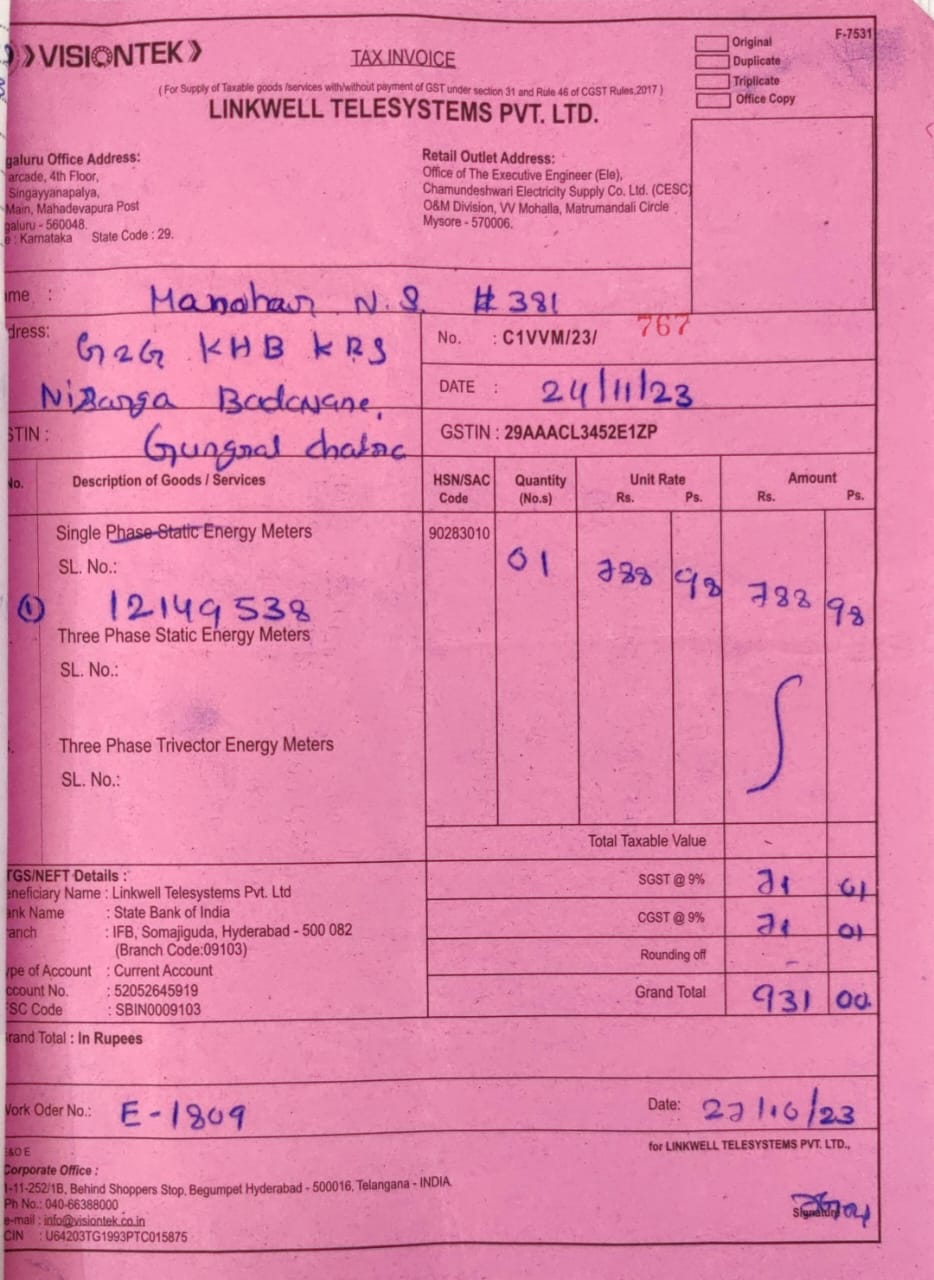 VISIONTEK
TAX INVOICE
Original
Duplicate
Triplicate
Office Copy
F-7531
( For Supply of Taxable goods /services with/without payment of GST under section 31 and Rule 46 of CGST Rules,2017 )
LINKWELL TELESYSTEMS PVT. LTD.
galuru Office Address:
arcade, 4th Floor,
Singayyanapalya,
Main, Mahadevapura Post
galuru - 560048.
e : Karnataka State Code : 29.
Retail Outlet Address:
Office of The Executive Engineer (Ele),
Chamundeshwari Electricity Supply Co. Ltd. (CESC)
O&M Division, VV Mohalla, Matrumandali Circle
Mysore - 570006.
ame : Manohar N.S. #381
dress: G2G KHB KRS
Nisarga Badavane,
STIN : Gungral
No. : C1VVM/23/ 767
DATE : 24/11/23
GSTIN : 29AAACL3452E1ZP
No. Description of Goods / Services HSN/SAC Code Quantity (No.s) Unit Rate Rs. Ps. Amount Rs. Ps.
Single Phase Static Energy Meters 90283010 01 788 98 788 98
SL. No.:
① 12149538
Three Phase Static Energy Meters
SL. No.:
Three Phase Trivector Energy Meters
SL. No.:
Total Taxable Value -
SGST @ 9% 71 01
CGST @ 9% 71 01
Rounding off -
Grand Total 931 00
TGS/NEFT Details :
eneficiary Name : Linkwell Telesystems Pvt. Ltd
ank Name : State Bank of India
anch : IFB, Somajiguda, Hyderabad - 500 082
(Branch Code:09103)
ype of Account : Current Account
ccount No. : 52052645919
SC Code : SBIN0009103
rand Total : In Rupees
Work Oder No.: E-1809
Date: 27/10/23
&O E
for LINKWELL TELESYSTEMS PVT. LTD.,
Corporate Office :
1-11-252/1B, Behind Shoppers Stop, Begumpet Hyderabad - 500016, Telangana - INDIA.
Ph No.: 040-66388000
e-mail : info@visiontek.co.in
CIN : U64203TG1993PTC015875
Signature